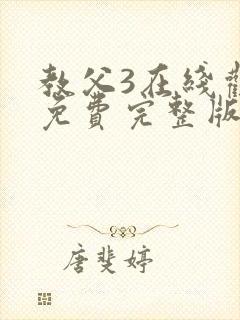 教父3在线观
免费完整版
唐斐婷